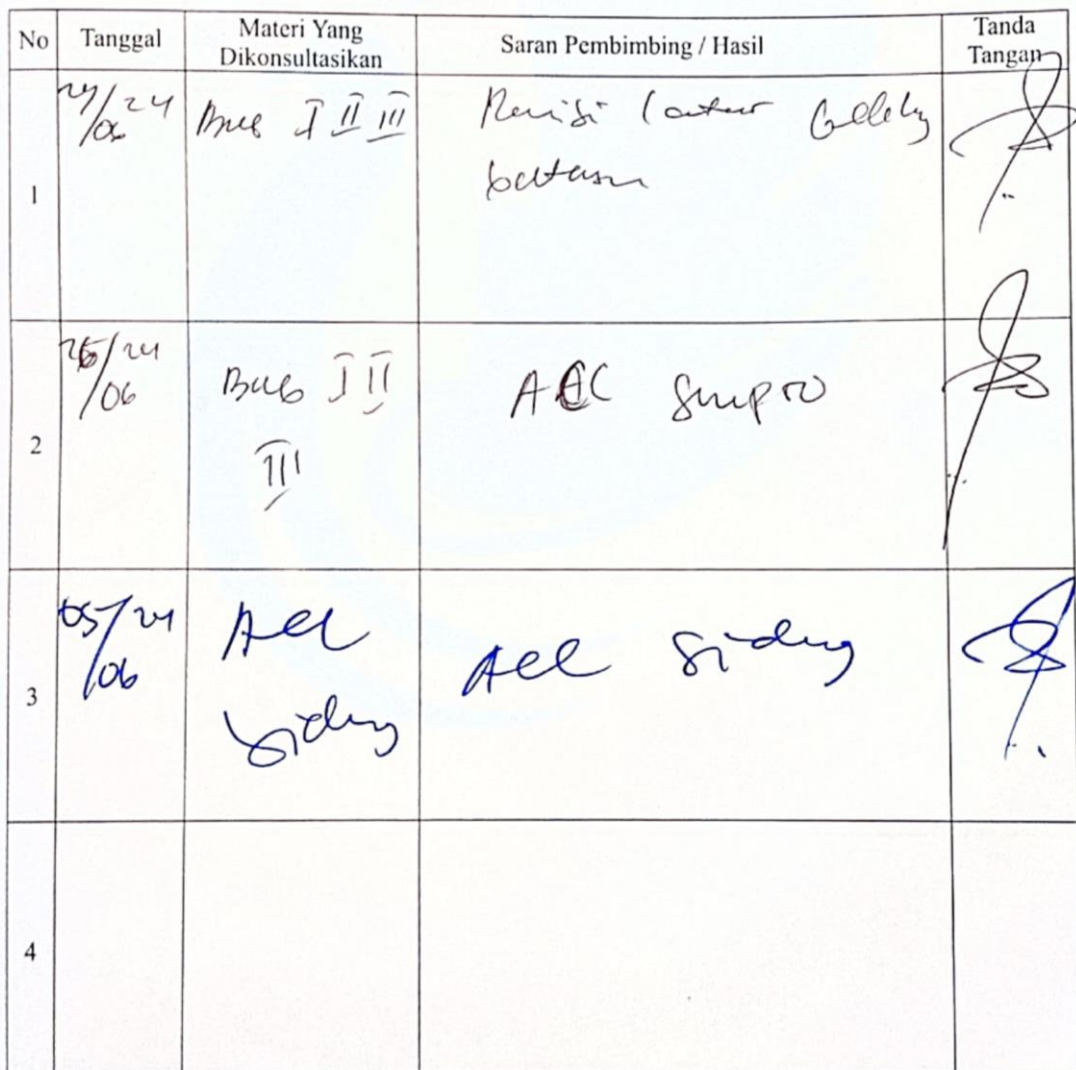 No Tanggal Materi Yang Dikonsultasikan Saran Pembimbing / Hasil Tanda Tangan
1 24/06 24 Bab I II III Revisi latar belakang
batasan
2 26/06 24 Bab I II ACC Sempro
III
3 05/06 24 Acc Acc Sidang
Sidang
4